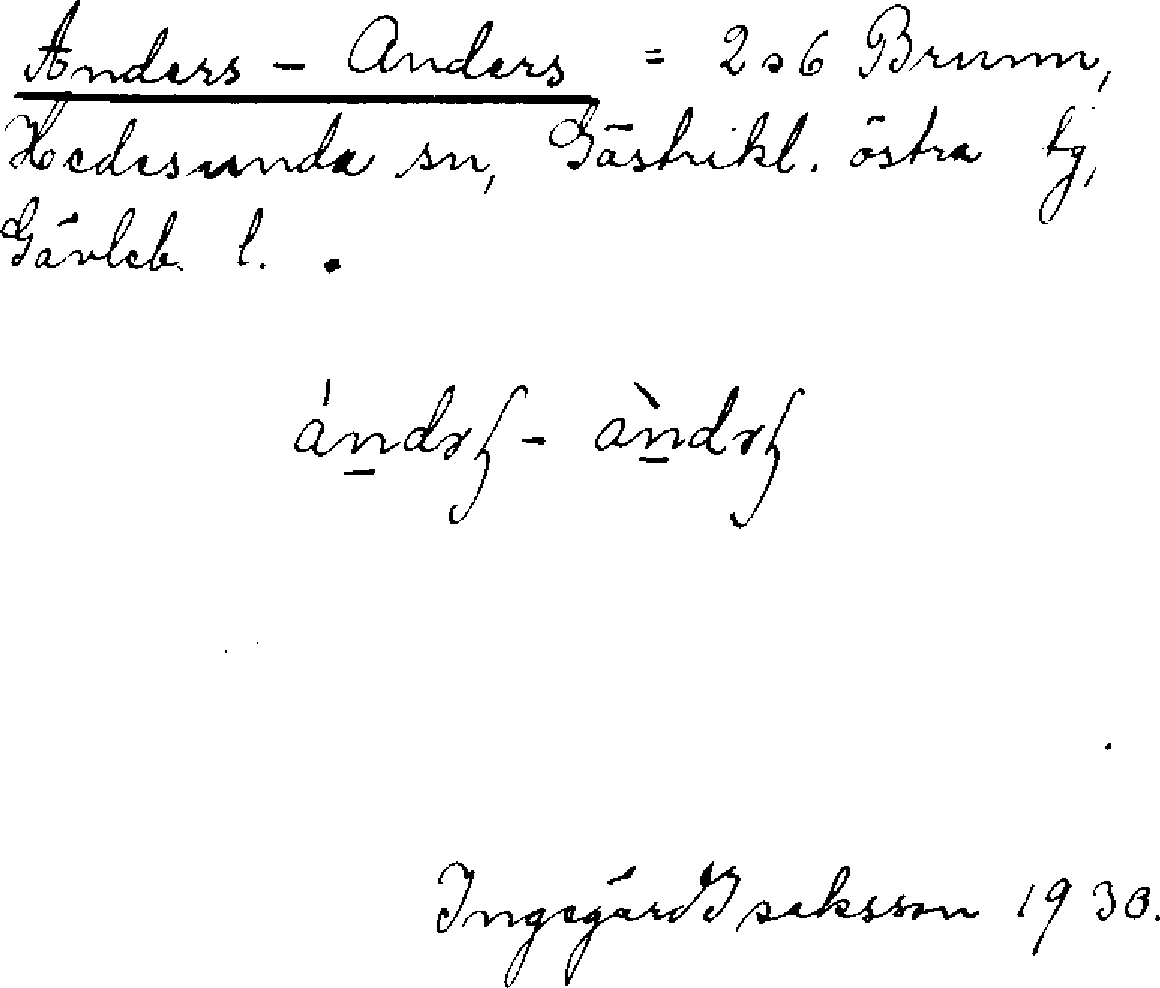 Anders – Anders = 2 o 6 Brunn,
Hedesunda sn, Gästrikl. östra tg,
Gävleb. l.
Ingegärd Isaksson 1930.